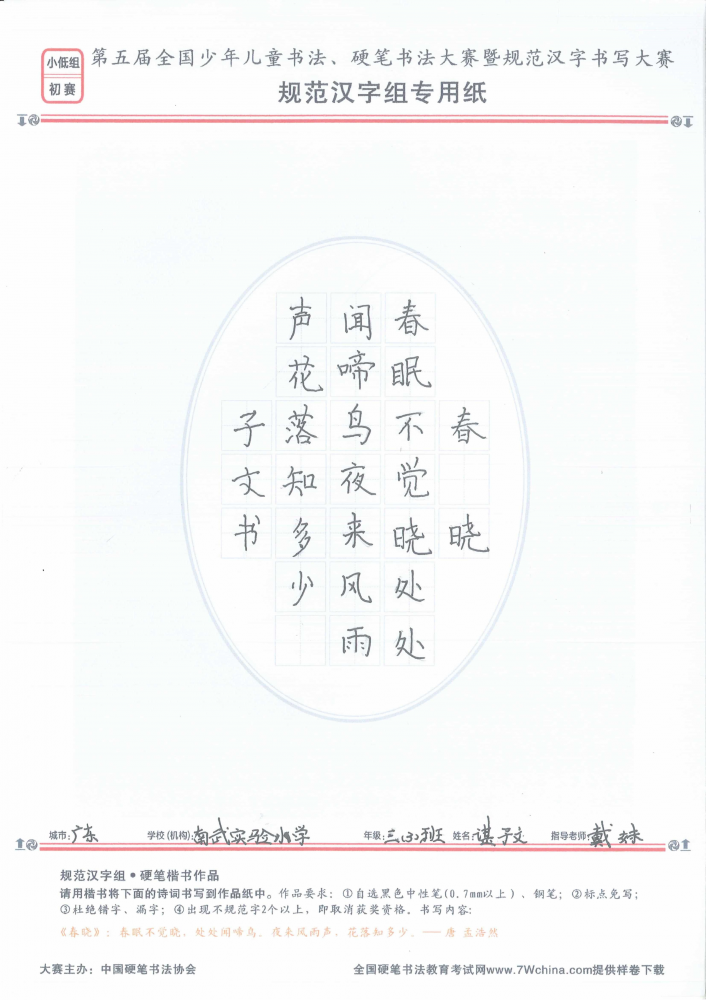 小低组
初赛
第五届全国少年儿童书法、硬笔书法大赛暨规范汉字书写大赛
规范汉字组专用纸
春晓
春眠不觉晓处处
闻啼鸟夜来风雨
声花落知多少
子文书
城市:广东 学校(机构):南武实验小学 年级:三(3)班 姓名:谌子文 指导老师:戴姝
规范汉字组●硬笔楷书作品
请用楷书将下面的诗词书写到作品纸中。作品要求:①自选黑色中性笔(0.7mm以上)、钢笔;②标点免写;
③杜绝错字、漏字;④出现不规范字2个以上,即取消获奖资格。书写内容:
《春晓》:春眠不觉晓,处处闻啼鸟。夜来风雨声,花落知多少。——唐 孟浩然
大赛主办:中国硬笔书法协会 全国硬笔书法教育考试网www.7Wchina.com提供样卷下载